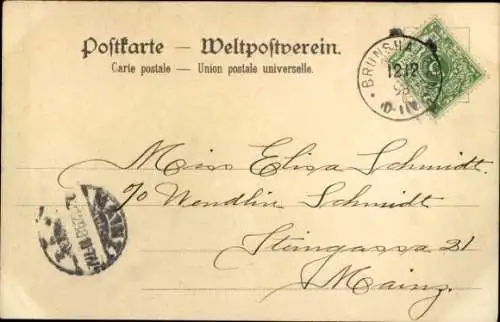 Postkarte — Weltpostverein.
Carte postale — Union postale universelle.
BRUNSHA
12.12
98
Miss Elisa Schmidt.
c/o Wendlin Schmidt
Steingassa 21
Mainz.
MAINZ